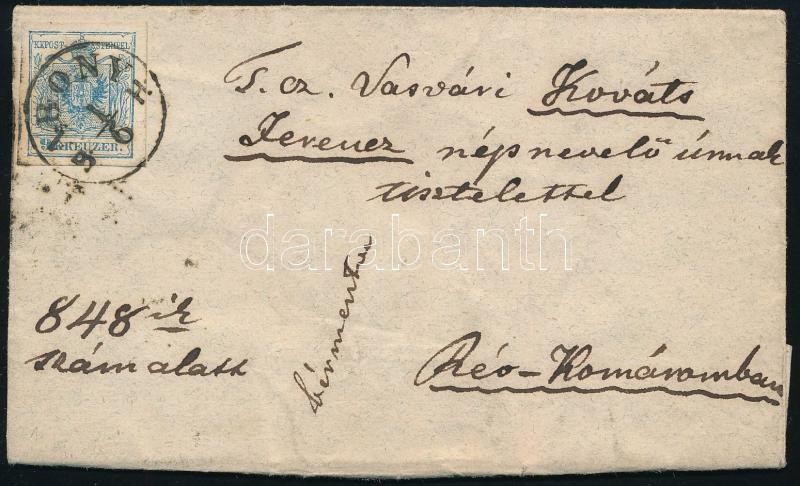 KKPOST-STEMPEL
KREUZER.
T. cz. Vasvári Kováts
Ferencz népnevelő úrnak
tisztelettel
darabanth
bérmentve
848ik
szám alatt
Rév-Komáromban